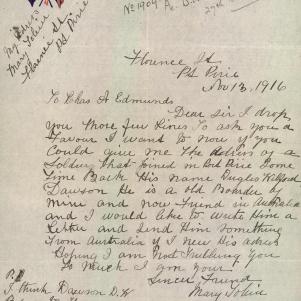 My Adres
Mary Tobin
Florence St
Pt Pirie
No 1904
Florence St
Pt Pirie
Nov 13, 1916
To Chas A Edmunds
Dear Sir I drop
you those few lines To ask you a
Favour I want to now if you
Could give me the adres of a
Soldier that Joined in Port Pirie Some
time Back His name Duglas Wilfred
Dawson He is a old Boarder of
mine and now Friend in Australia
and I would like to write Him a
Letter and Send Him something
From Australia if I new His adres
Hoping I am Not Trubling you
To Much I am your
Sincer Friend
Mary Tobin
P.S
I think Dawson D.W